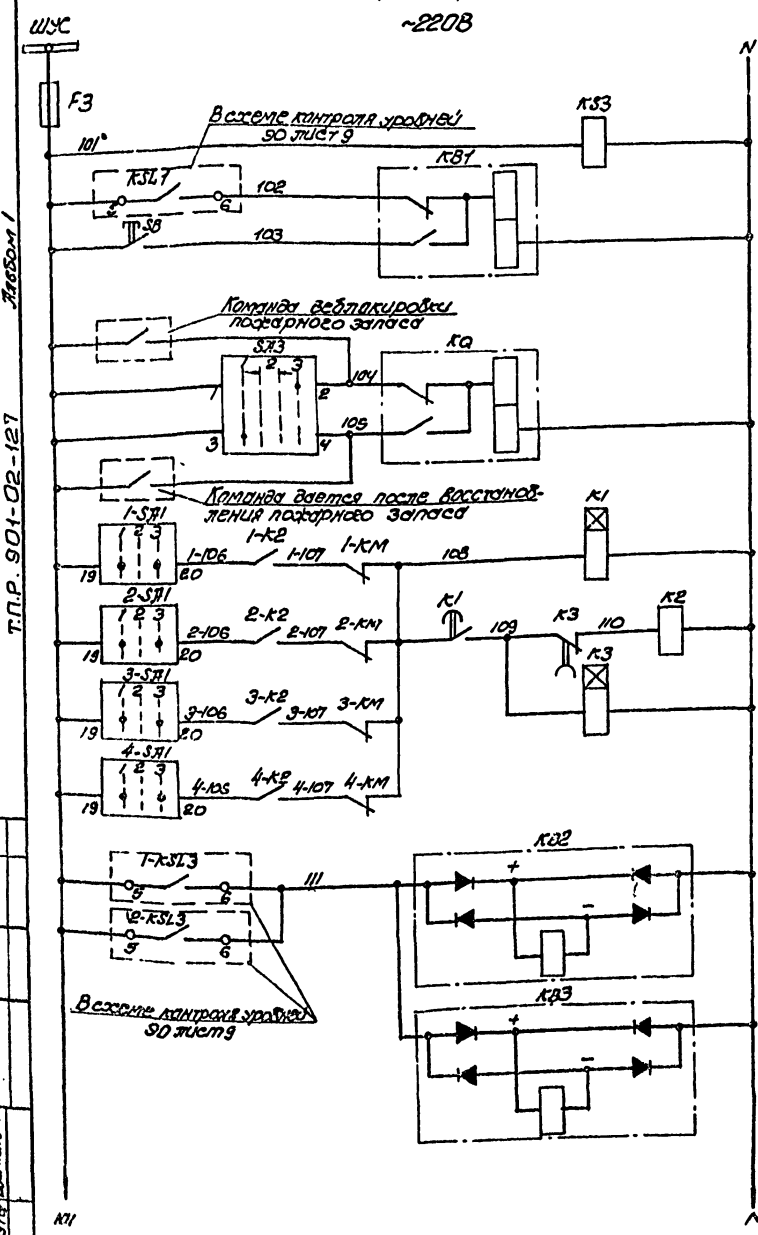 ~220В
ШУС
N
F3
В схеме контроля уровней
ЭО лист 9
KS3
101
KSL1
5
6
102
KB1
SB
103
Команда деблокировки
пожарного запаса
SA3
1 2 3
1
2
104
KQ
3
4
105
Команда дается после восстанов-
ления пожарного запаса
K1
1-SA1
1 2 3
19
20
1-106
1-K2
1-107
1-KM
108
2-SA1
1 2 3
19
20
2-106
2-K2
2-107
2-KM
K1
109
K3
110
K2
K3
3-SA1
1 2 3
19
20
3-106
3-K2
3-107
3-KM
4-SA1
1 2 3
19
20
4-106
4-K2
4-107
4-KM
1-KSL3
5
6
111
KB2
+
−
2-KSL3
5
6
В схеме контроля уровней
ЭО лист 9
KB3
+
−
Альбом 1
Т.П.Р. 901-02-127